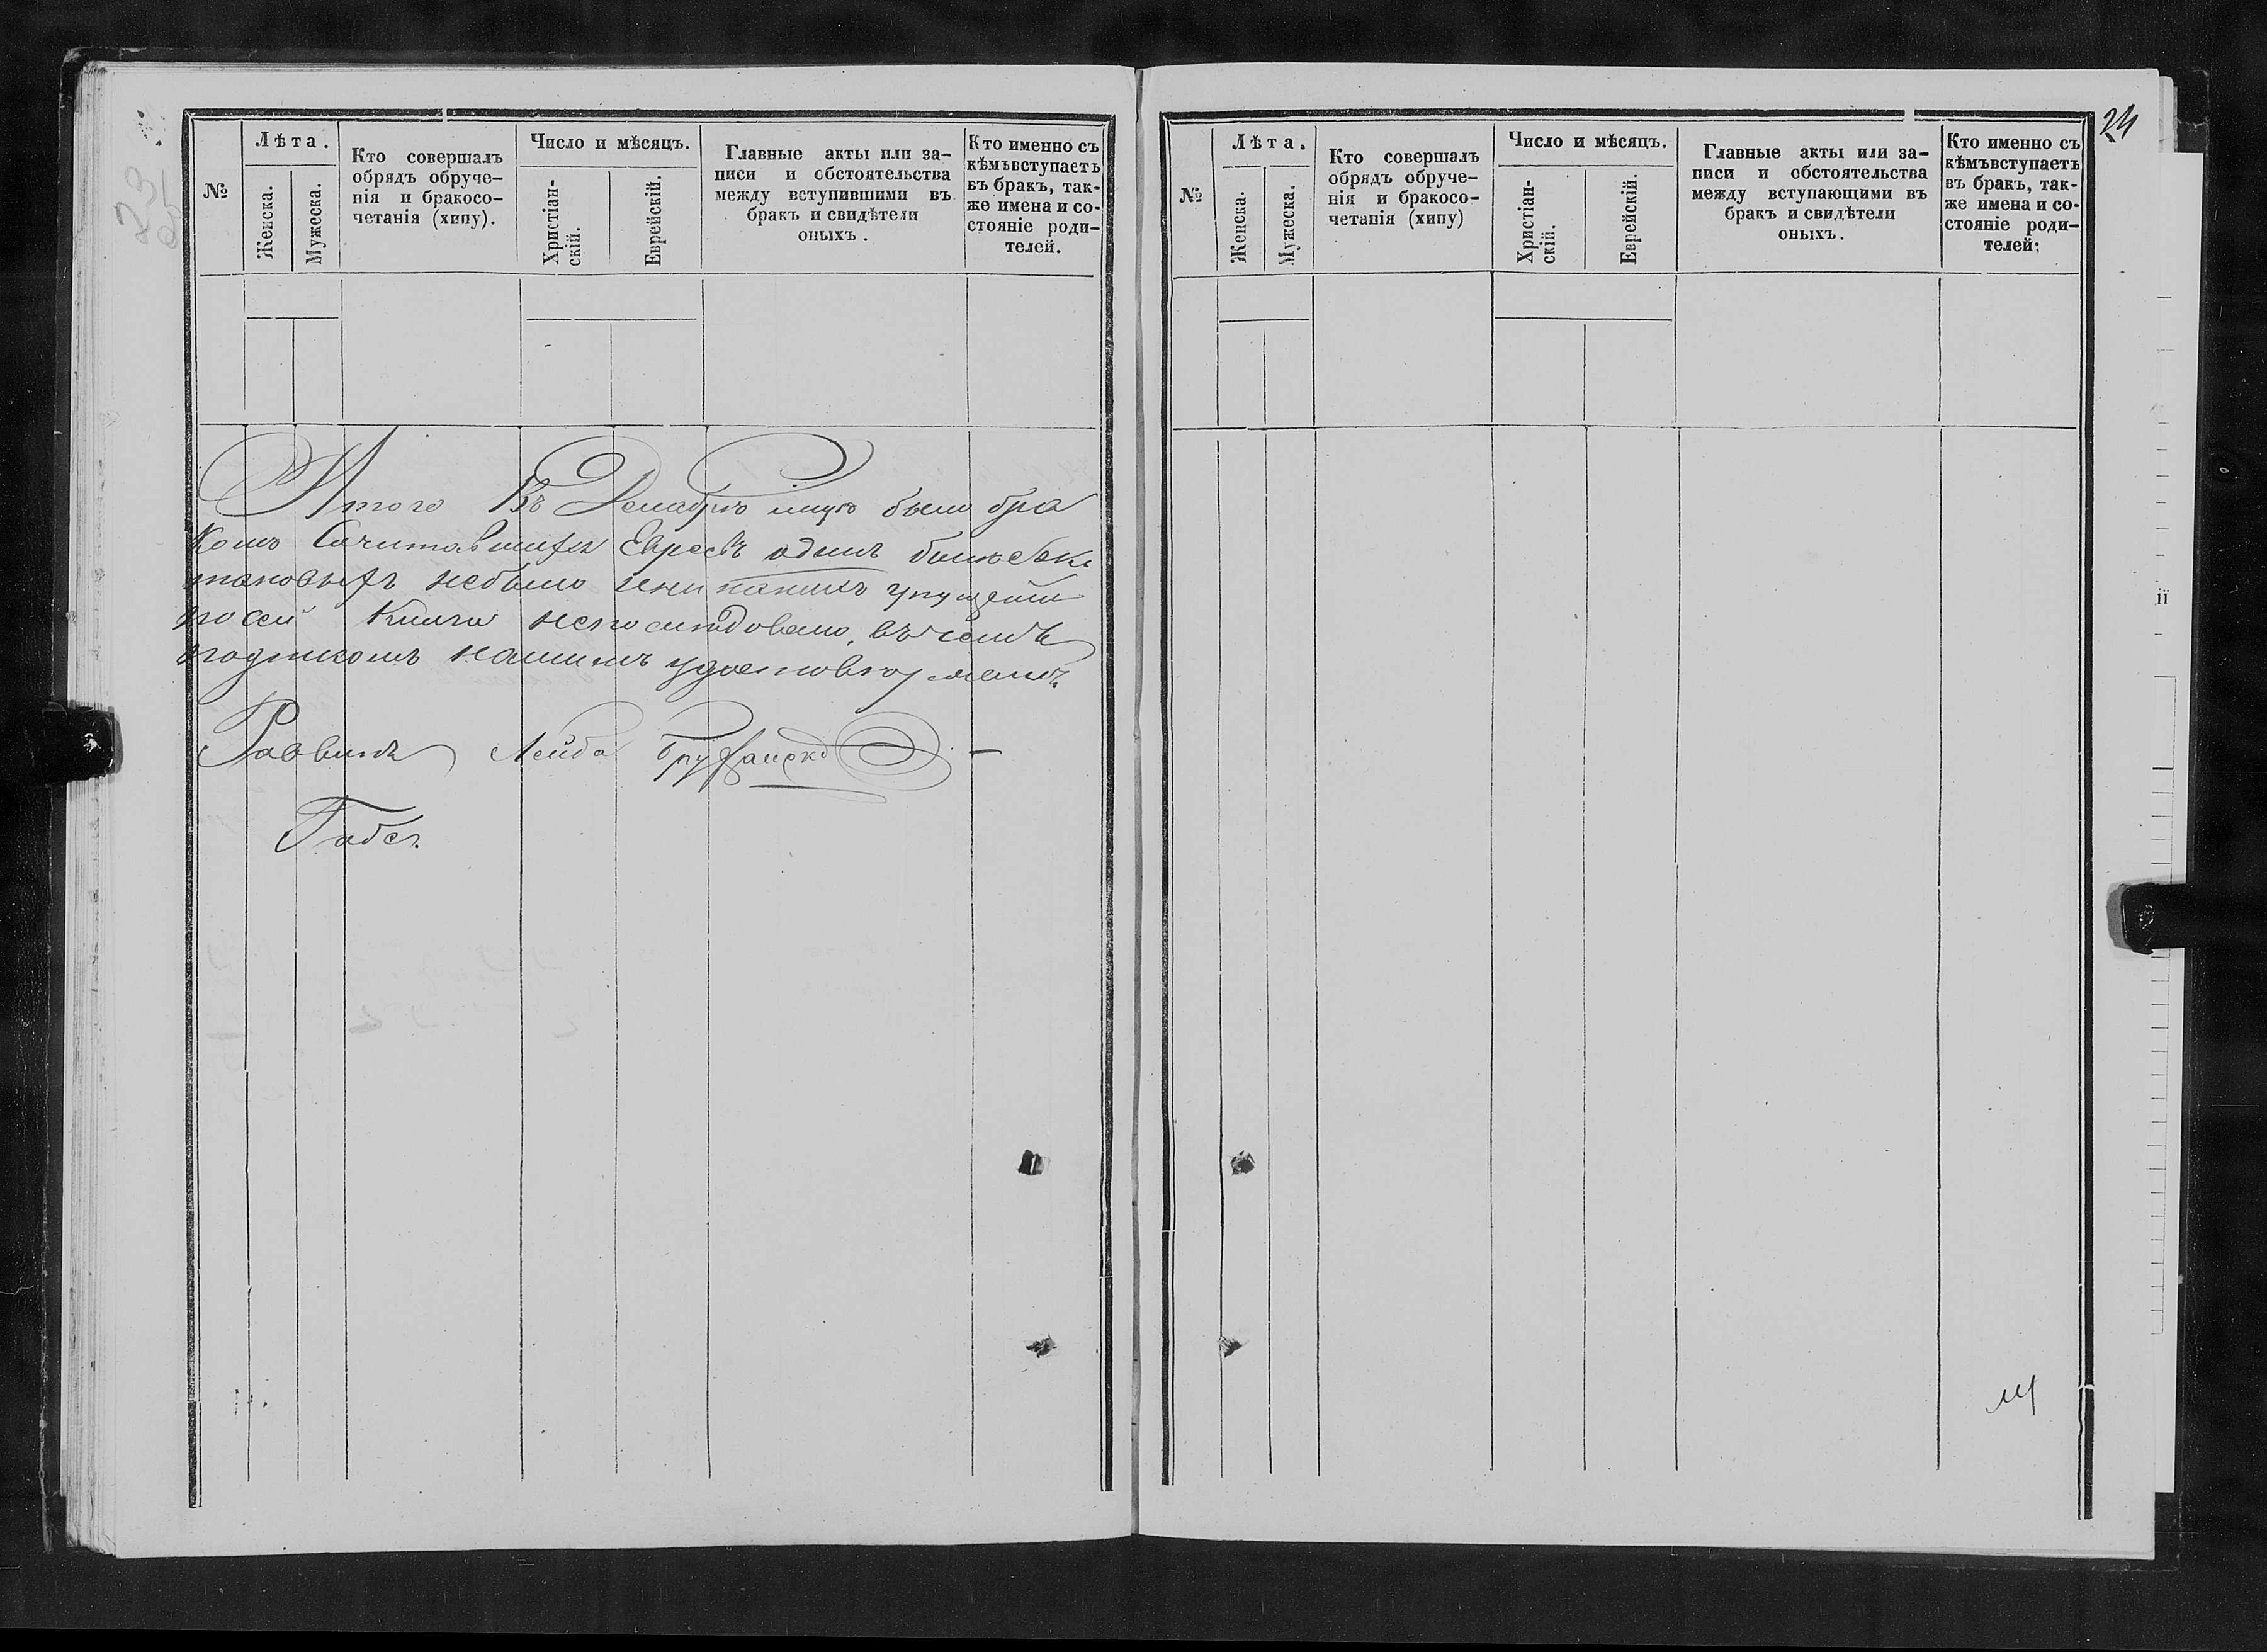 23
об
№
Лѣта.
Женска.
Мужеска.
Кто совершалъ
обрядъ обруче-
нія и бракосо-
четанія (хипу).
Число и мѣсяцъ.
Христіан-
скій.
Еврейскій.
Главные акты или за-
писи и обстоятельства
между вступившими въ
бракъ и свидѣтели
оныхъ.
Кто именно съ
кѣмъвступаетъ
въ бракъ, так-
же имена и со-
стояніе роди-
телей.
Итого Въ Декабрѣ было бра
комъ Сочитавшихся Евреевъ одинъ
таковыхъ небыло упущеній
посей Книги непослѣдовало, въчемъ
подписомъ нашимъ удостовѣряемъ.
Раввинъ Лейба
24
№
Лѣта.
Женска.
Мужеска.
Кто совершалъ
обрядъ обруче-
нія и бракосо-
четанія (хипу)
Число и мѣсяцъ.
Христіан-
скій.
Еврейскій.
Главные акты или за-
писи и обстоятельства
между вступающими въ
бракъ и свидѣтели
оныхъ.
Кто именно съ
кѣмъвступаетъ
въ бракъ, так-
же имена и со-
стояніе роди-
телей;